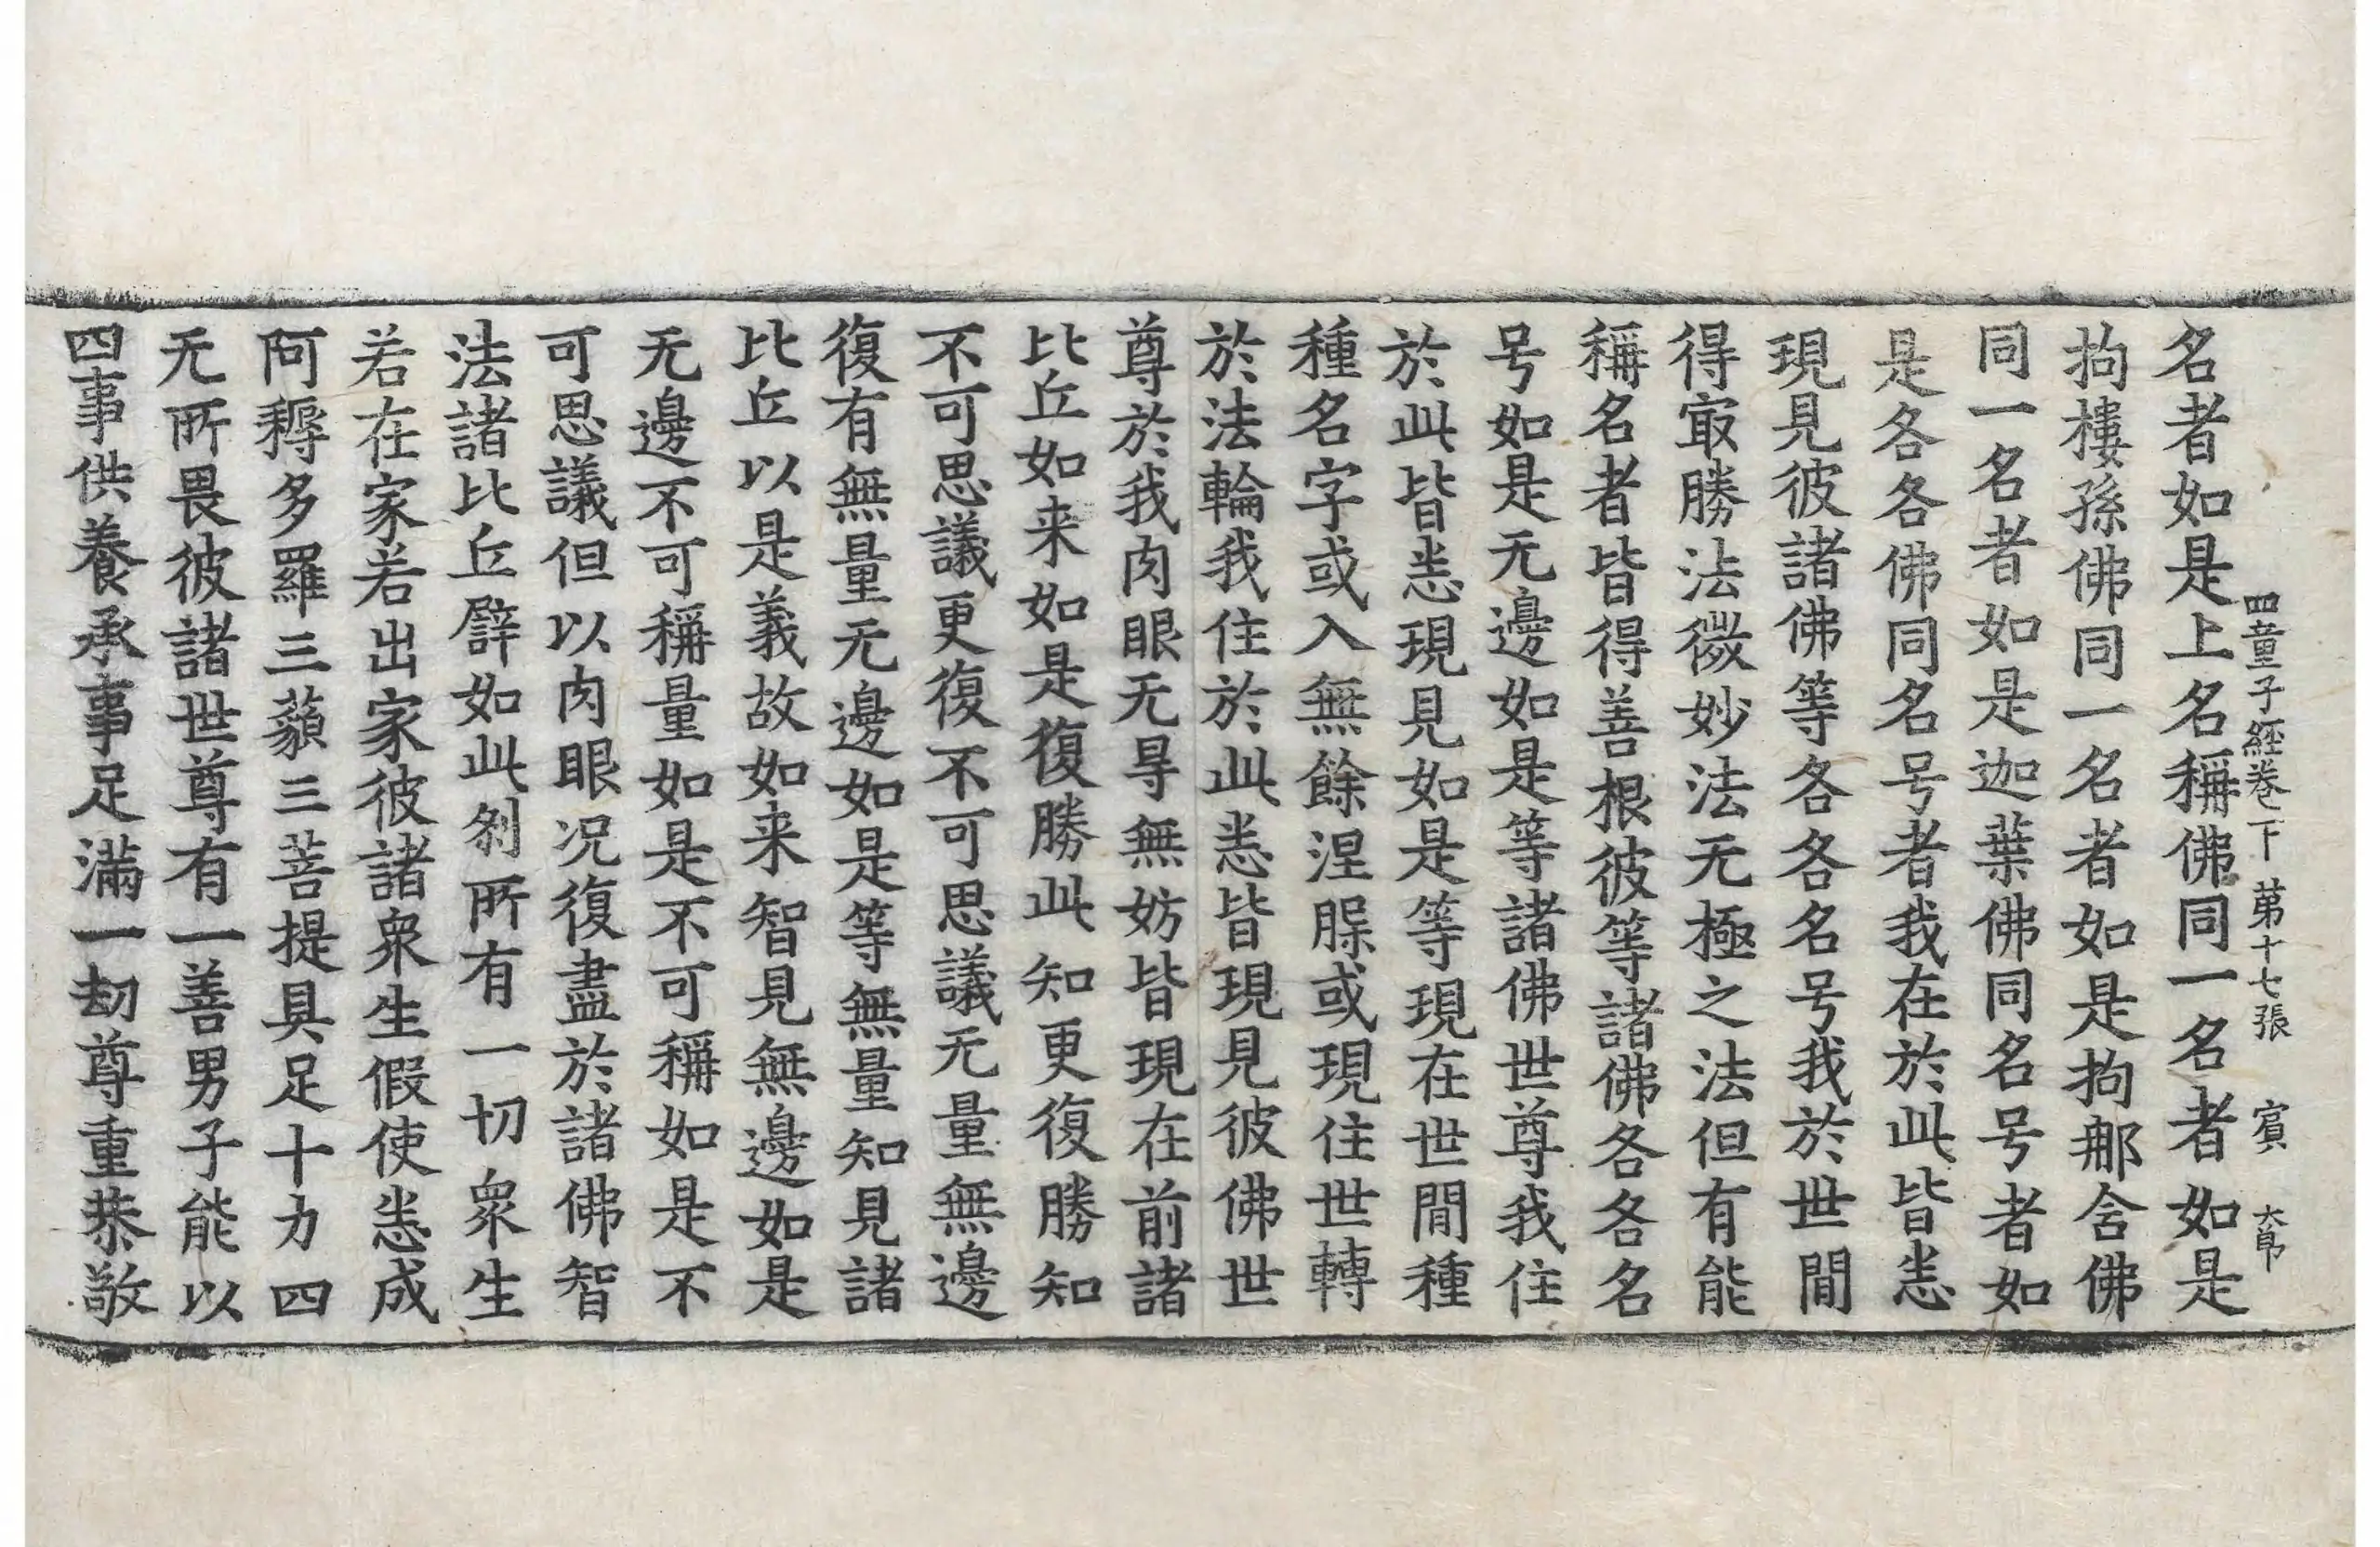 四童子經卷下 第十七張 賓 大卬
名者如是上名稱佛同一名者如是
拘樓孫佛同一名者如是拘那含佛
同一名者如是迦葉佛同名号者如
是各各佛同名号者我在於此皆悉
現見彼諸佛等各各名号我於世間
得冣勝法微妙法无極之法但有能
稱名者皆得善根彼等諸佛各各名
号如是无邊如是等諸佛世尊我住
於此皆悉現見如是等現在世間種
種名字或入無餘涅槃或現住世轉
於法輪我住於此悉皆現見彼佛世
尊於我肉眼无㝵無妨皆現在前諸
比丘如来如是復勝此知更復勝知
不可思議更復不可思議无量無邊
復有無量无邊如是等無量知見諸
比丘以是義故如来智見無邊如是
无邊不可稱量如是不可稱如是不
可思議但以肉眼况復盡於諸佛智
法諸比丘譬如此剎所有一切衆生
若在家若出家彼諸衆生假使悉成
阿耨多羅三藐三菩提具足十力四
无所畏彼諸世尊有一善男子能以
四事供養承事足滿一劫尊重恭敬